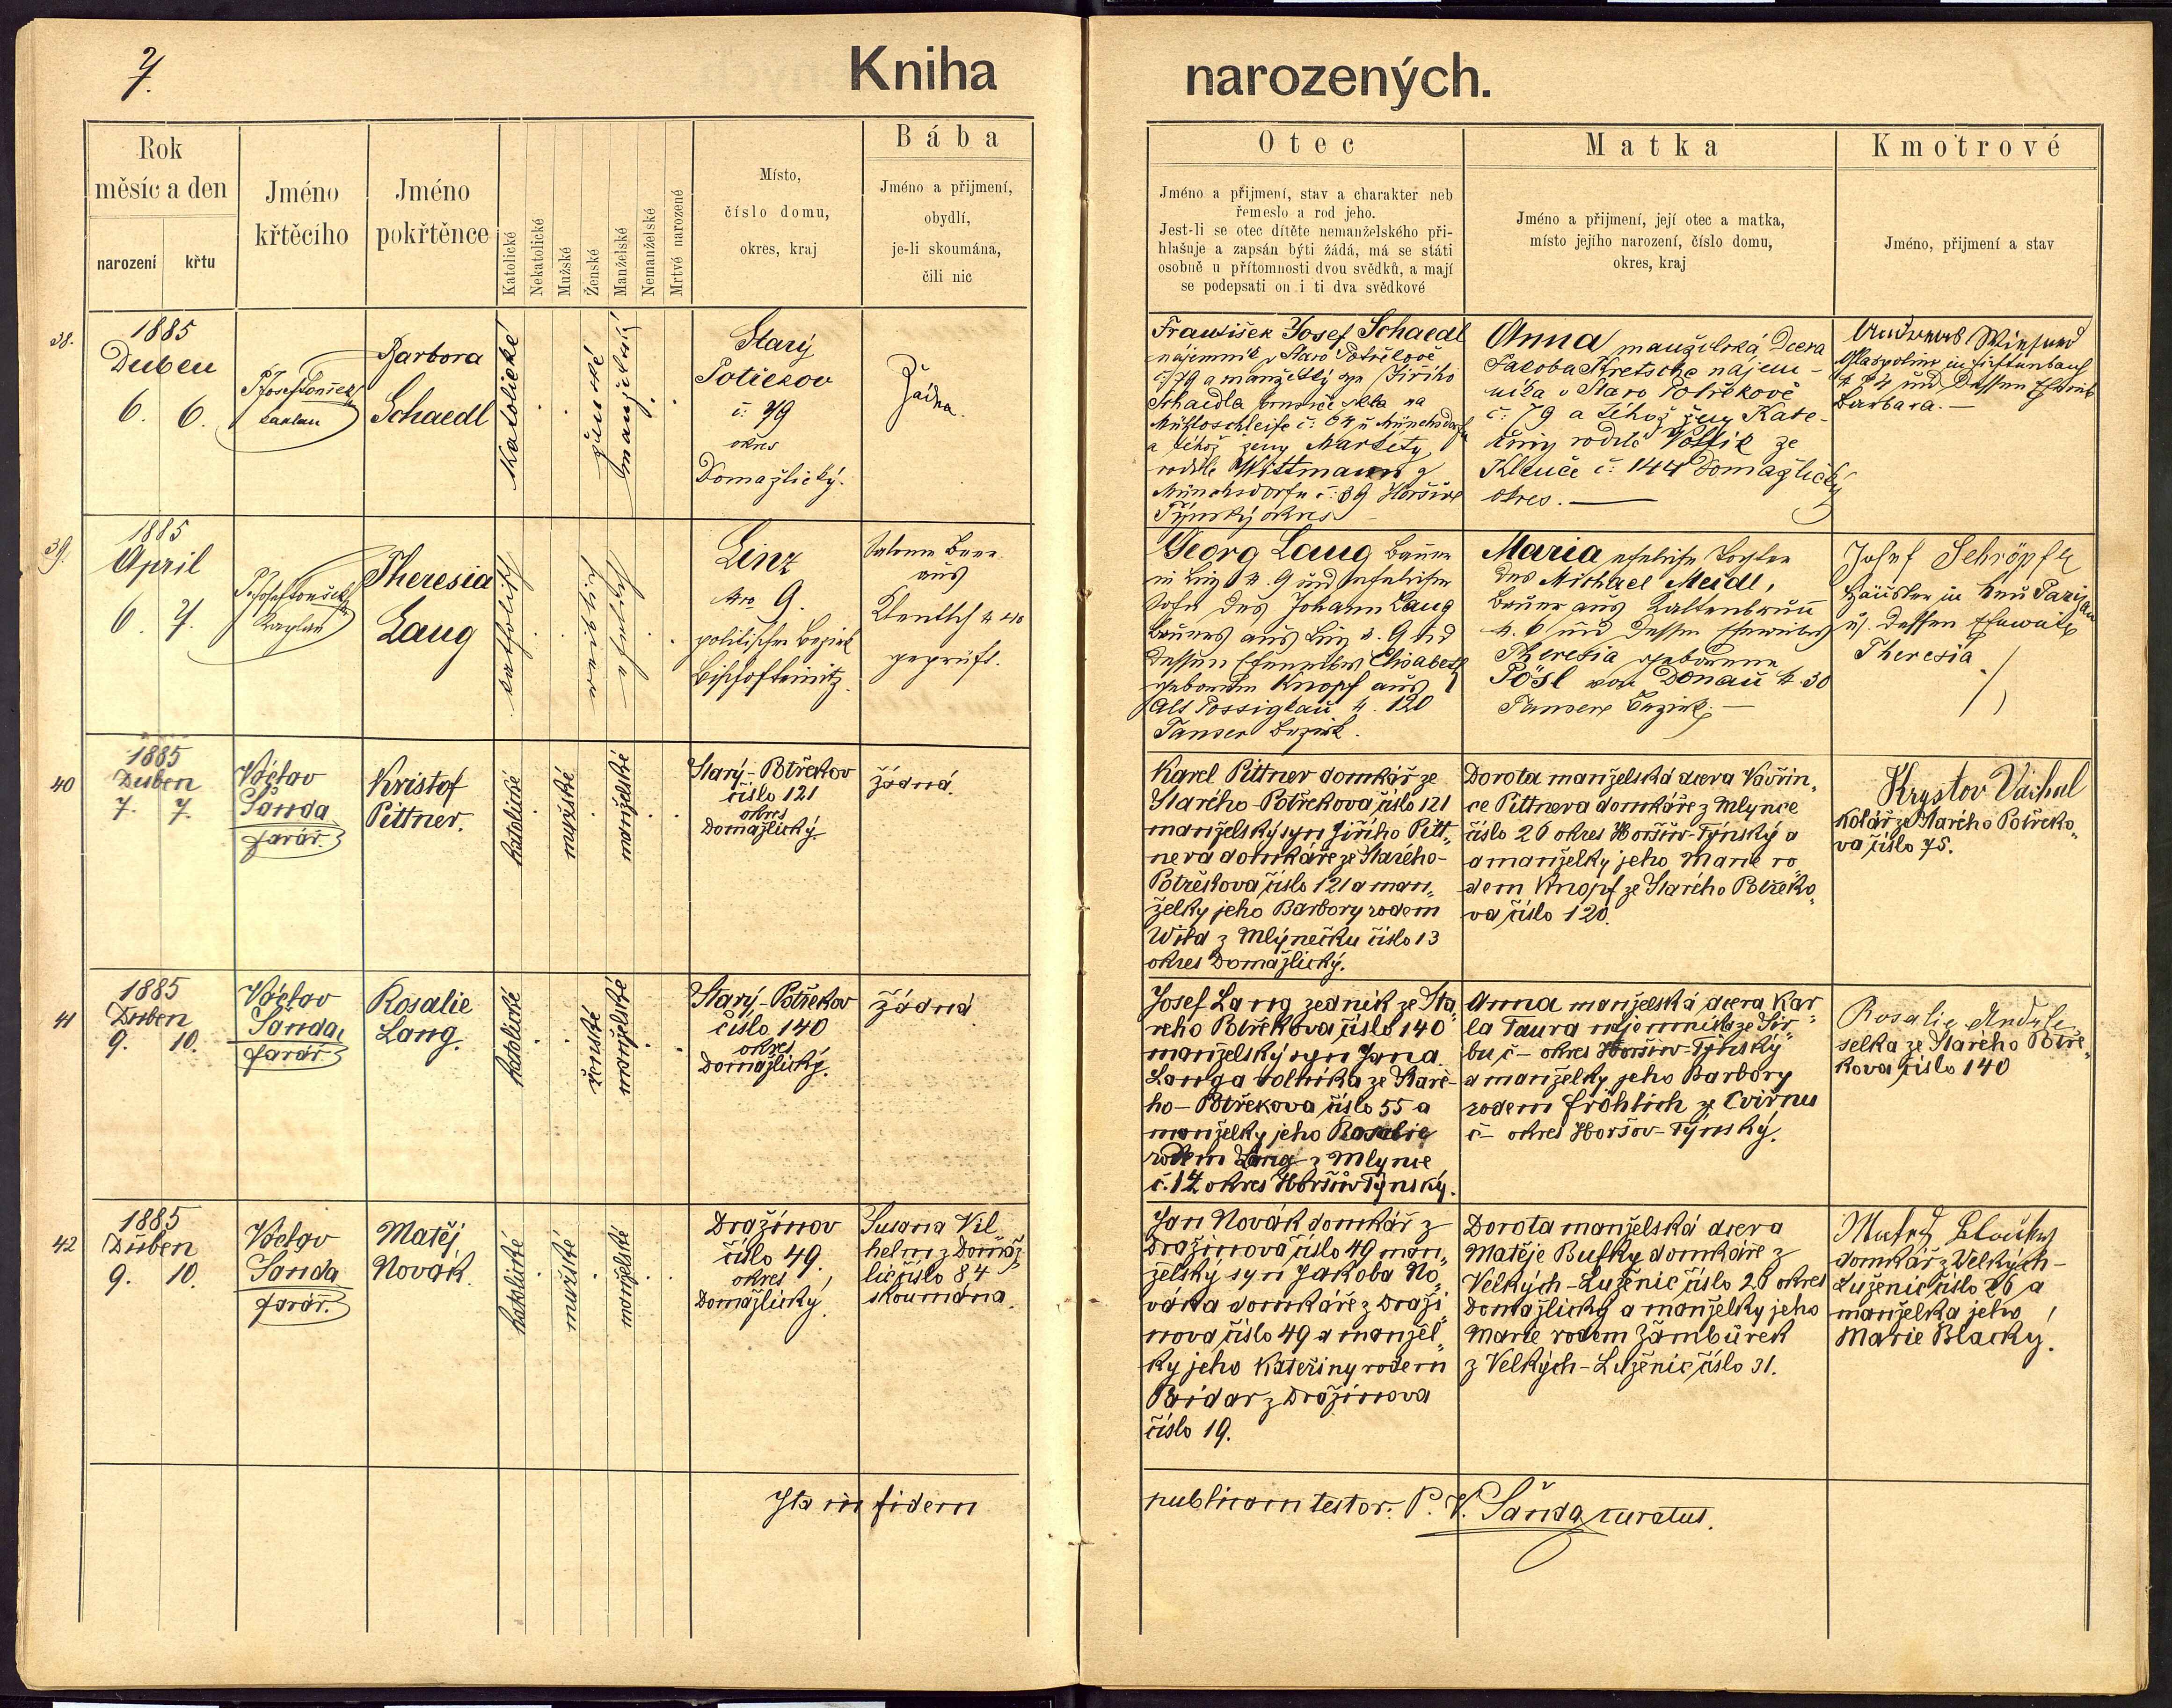 7.
Kniha narozených.
Rok
měsíc a den
narození
křtu
Jméno
křtěcího
Jméno
pokřtěnce
Katolické
Nekatolické
Mužské
Ženské
Manželské
Nemanželské
Mrtvě narozené
Místo,
číslo domu,
okres, kraj
Bába
Jméno a přijmení,
obydlí,
je-li skoumána,
čili nic
Otec
Jméno a přijmení, stav a charakter neb
řemeslo a rod jeho.
Jest-li se otec dítěte nemanželského při-
hlašuje a zapsán býti žádá, má se státi
osobně u přítomnosti dvou svědků, a mají
se podepsati on i ti dva svědkové
Matka
Jméno a přijmení, její otec a matka,
místo jejího narození, číslo domu,
okres, kraj
Kmotrové
Jméno, přijmení a stav
38.
1885
Duben
6. 6.
P. Josef
kaplan
Barbora
Schaedl
Katolické
ženské
manželský
Starý
Potřekov
č: 79
okres
Domažlický.
Žádna.
František Josef Schaedl
nájemník v Staro Potřekově
č: 79 a manželský syn Jiřího
Schaedla
č: 64
a téhož ženy Markety
rodilé Wittmann z
Münchsdorfu č: 39 Horšův
Týnský okres
Anna manželská Dcera
Jakoba Kretsche nájem-
níka v Staro Potřekově
č: 79 a téhož ženy Kate-
řiny rodilé ze
Klenče č: 144 Domažlický
okres. —
in
und dessen Eheweib
Barbara. —
39.
1885
April
6. 7.
P. Josef
Kaplan
Theresia
Lang
katholisch
weiblich
ehelich
Linz
Nro 9.
politischer Bezirk
Bischofteinitz.
aus
Klentsch N 40
geprüft.
Georg Lang Bauer
in Linz N. 9 und ehelicher
Sohn des Johann Lang
Bauers aus Linz N. 9 und
dessen Eheweibes Elisabeth
geborenen Knopf aus
Alt Possigkau N. 120
Tauser Bezirk.
Maria eheliche Tochter
des Michael Meidl,
Bauer aus Kaltenbrunn
N. 6 und dessen Eheweibes
Theresia geborenen
Pösl von Donau N. 30
Tauser Bezirk. —
Josef Schröpfer
Häusler in Neu
u. dessen Eheweib
Theresia
40
1885
Duben
7. 7.
Václav
Šanda
farář.
Kristof
Pittner.
katolické
mužské
manželské
Starý-Potřekov
číslo 121
okres
Domažlický.
žádná.
Karel Pittner domkář ze
Starého-Potřekova číslo 121
manželský syn Jiřího Pitt„
nera domkáře ze Starého-
Potřekova číslo 121 a man„
želky jeho Barbory rodem
z Mlýnečku číslo 13
okres Domažlický.
Dorota manželská dcera Vavřin„
ce Pittnera domkáře z Mlynce
číslo 26 okres Horšův-Týnský a
a manželky jeho Marie ro„
dem Knopf ze Starého Potřeko„
va číslo 120.
Krystov
Kolář ze Starého Potřeko„
va číslo 75.
41
1885
Duben
9. 10.
Václav
Šanda,
farář
Rosalie
Lang.
katolické
ženské
manželské
Starý-Potřekov
číslo 140
okres
Domažlický.
žádná
Josef Lang zedník ze Sta„
rého Potřekova číslo 140
manželský syn Jana
Langa rolníka ze Staré-
ho-Potřekova číslo 55 a
manželky jeho Rosalie
rodem Lang z Mlynce
č. 12 okres Horšův Týnský.
Anna manželská dcera Kar„
la Taura nájemníka ze Sir„
bu č – okres Horšův-Týnský
a manželky jeho Barbory
rodem Fröhlich ze Cvirnu
č – okres Horšov-Týnský.
Rosalie
selka ze Starého Potře„
kova číslo 140
42
1885
Duben
9. 10.
Václav
Šanda
farář.
Matěj
Novák
katolické
mužské
manželské
Dražinov
číslo 49.
okres
Domažlický.
Susana Vil„
helm z Domaž„
lic číslo 84
skoumána.
Jan Novák domkář z
Dražinova číslo 49 man„
želský syn Jakoba No„
váka domkáře z Draži„
nova číslo 49 a manžel„
ky jeho Kateřiny rodem
z Dražinova
číslo 19.
Dorota manželská dcera
Matěje Bufky domkáře z
Velkých-Luženic číslo 26 okres
Domažlický a manželky jeho
Marie rodem Žambůrek
z Velkých-Luženic číslo 31.
Matěj
domkář z Velkých-
Luženic číslo 26 a
manželka jeho
Marie Blacky.
Ita in fidem publicam testor. P. V. Šanda curatus.